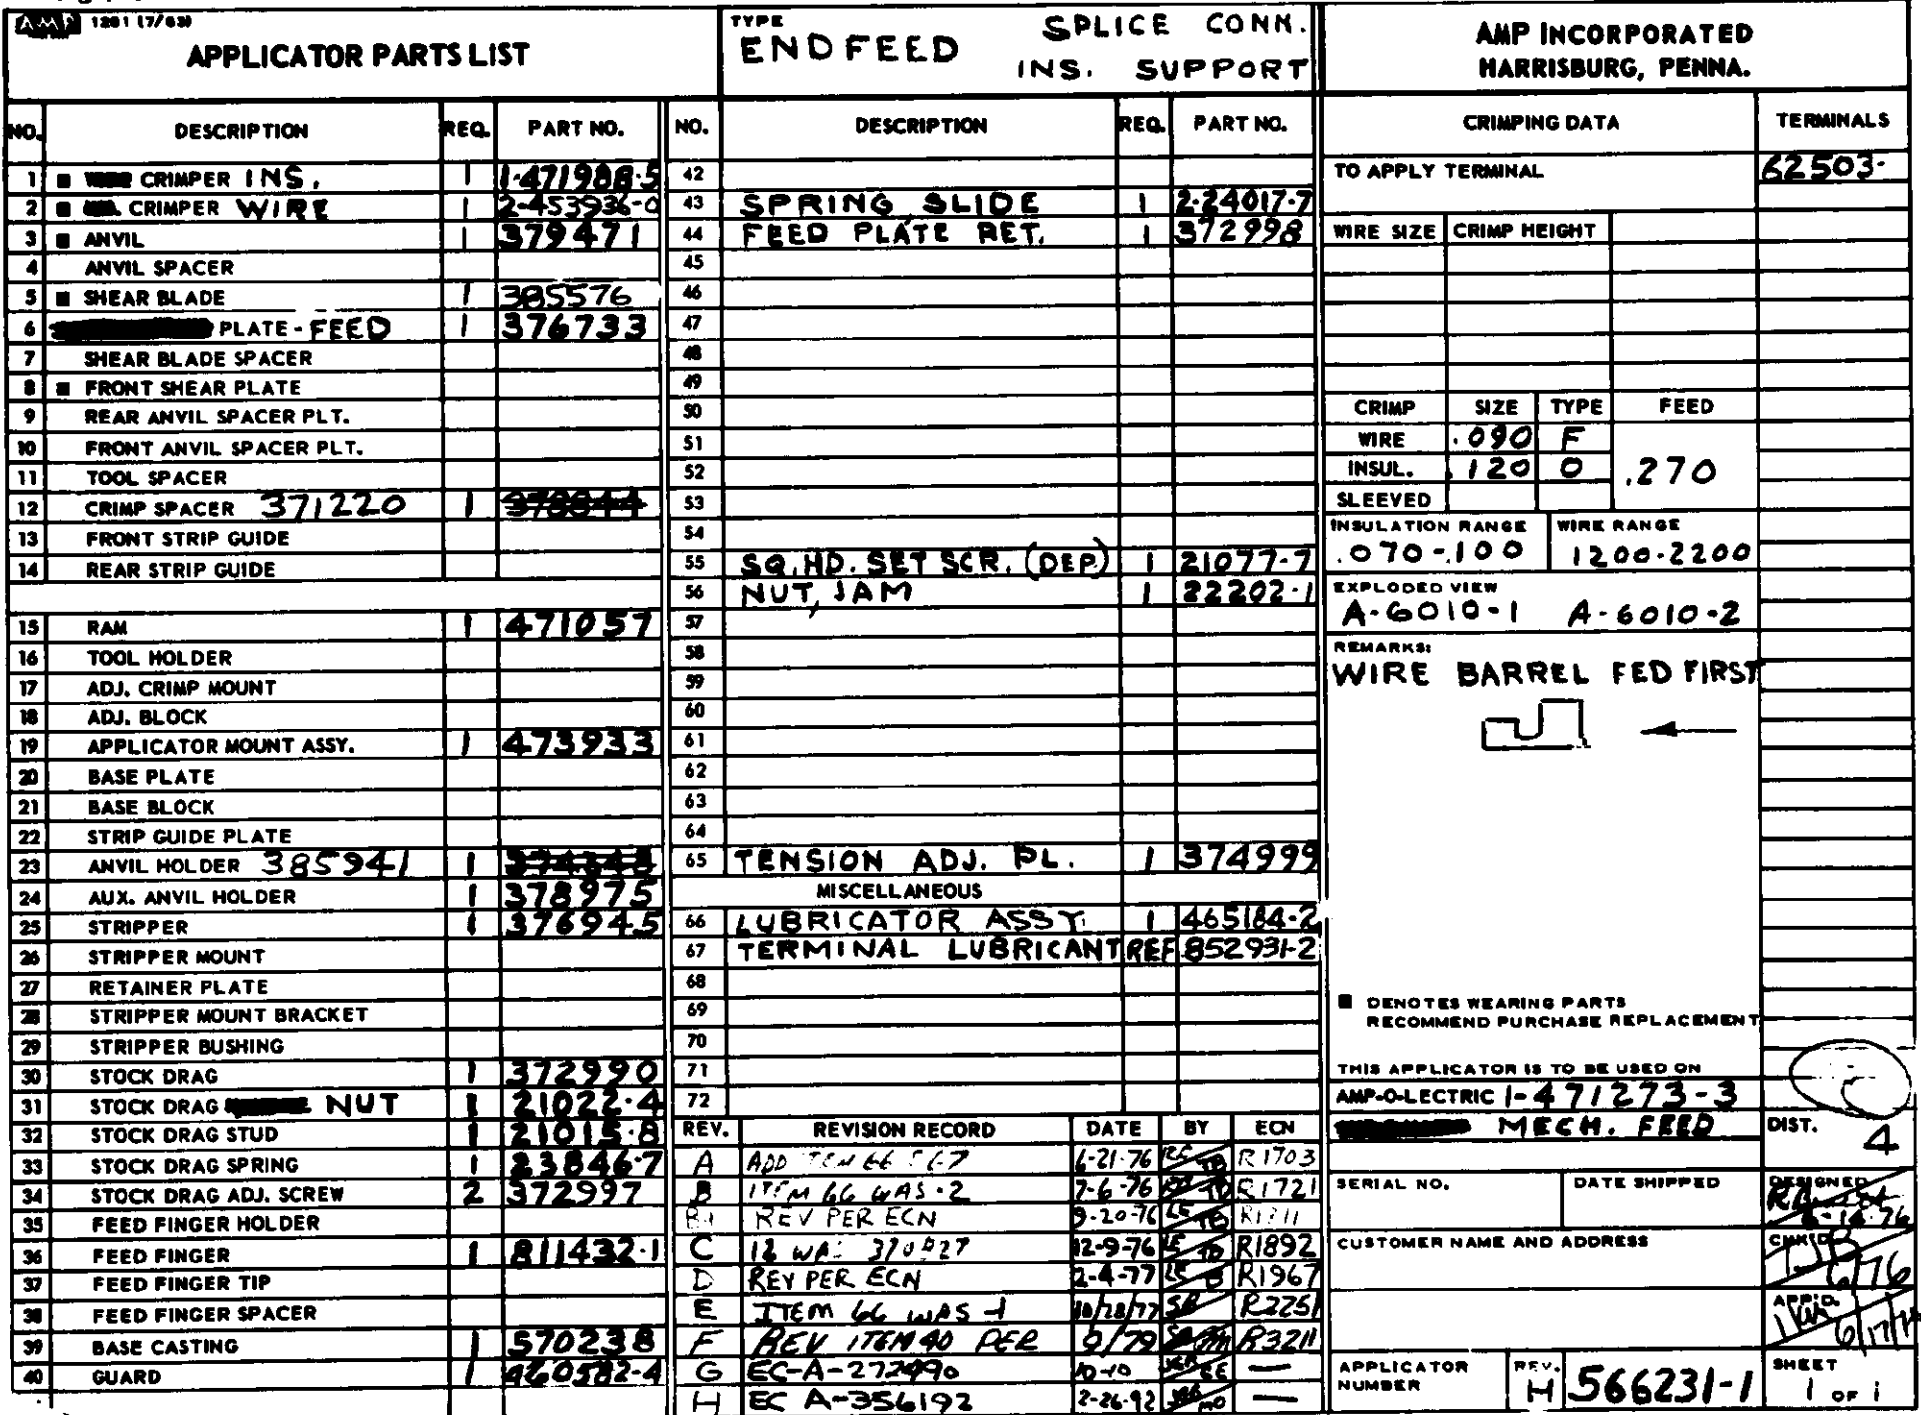 AMP 1281 (7/63)
APPLICATOR PARTS LIST
TYPE
END FEED
SPLICE CONN.
INS. SUPPORT
AMP INCORPORATED
HARRISBURG, PENNA.
NO. DESCRIPTION REQ. PART NO.
1 ■ CRIMPER INS. 1 1-471988-5
2 ■ CRIMPER WIRE 1 2-453936-0
3 ■ ANVIL 1 379471
4 ANVIL SPACER
5 ■ SHEAR BLADE 1 385576
6 PLATE - FEED 1 376733
7 SHEAR BLADE SPACER
8 ■ FRONT SHEAR PLATE
9 REAR ANVIL SPACER PLT.
10 FRONT ANVIL SPACER PLT.
11 TOOL SPACER
12 CRIMP SPACER 371220 1
13 FRONT STRIP GUIDE
14 REAR STRIP GUIDE
15 RAM 1 471057
16 TOOL HOLDER
17 ADJ. CRIMP MOUNT
18 ADJ. BLOCK
19 APPLICATOR MOUNT ASSY. 1 473933
20 BASE PLATE
21 BASE BLOCK
22 STRIP GUIDE PLATE
23 ANVIL HOLDER 385941 1
24 AUX. ANVIL HOLDER 1 378975
25 STRIPPER 1 376945
26 STRIPPER MOUNT
27 RETAINER PLATE
28 STRIPPER MOUNT BRACKET
29 STRIPPER BUSHING
30 STOCK DRAG 1 372990
31 STOCK DRAG NUT 1 21022-4
32 STOCK DRAG STUD 1 21015-8
33 STOCK DRAG SPRING 1 23846-7
34 STOCK DRAG ADJ. SCREW 2 372997
35 FEED FINGER HOLDER
36 FEED FINGER 1 811432-1
37 FEED FINGER TIP
38 FEED FINGER SPACER
39 BASE CASTING 1 570238
40 GUARD 1 460582-4
NO. DESCRIPTION REQ. PART NO.
42
43 SPRING SLIDE 1 2-24017-7
44 FEED PLATE RET. 1 372998
45
46
47
48
49
50
51
52
53
54
55 SQ. HD. SET SCR. (DEP.) 1 21077-7
56 NUT, JAM 1 22202-1
57
58
59
60
61
62
63
64
65 TENSION ADJ. PL. 1 374999
MISCELLANEOUS
66 LUBRICATOR ASSY. 1 465184-2
67 TERMINAL LUBRICANT REF 852931-2
68
69
70
71
72
REV. REVISION RECORD DATE BY ECN
A ADD ITEM 66 & 67 6-21-76 R1703
B ITEM 66 WAS -2 7-6-76 R1721
REV PER ECN 9-20-76
C 12-9-76 R1892
D REV PER ECN 2-4-77 R1967
E ITEM 66 WAS -1 10/28/77 R2251
F REV ITEM 40 PER 9/79 R3211
G EC-A-272490 —
H EC A-356192 2-26-92 —
CRIMPING DATA TERMINALS
TO APPLY TERMINAL 62503-
WIRE SIZE CRIMP HEIGHT
CRIMP SIZE TYPE FEED
WIRE .090 F
INSUL. .120 O .270
SLEEVED
INSULATION RANGE WIRE RANGE
.070-.100 1200-2200
EXPLODED VIEW
A-6010-1 A-6010-2
REMARKS:
WIRE BARREL FED FIRST
■ DENOTES WEARING PARTS
RECOMMEND PURCHASE REPLACEMENT
THIS APPLICATOR IS TO BE USED ON
AMP-O-LECTRIC 1-471273-3
MECH. FEED
DIST.
4
SERIAL NO. DATE SHIPPED DESIGNED
6-16-76
CUSTOMER NAME AND ADDRESS CHK'D.
6/76
APP'D.
6/17/76
APPLICATOR NUMBER
REV.
H
566231-1
SHEET
1 OF 1